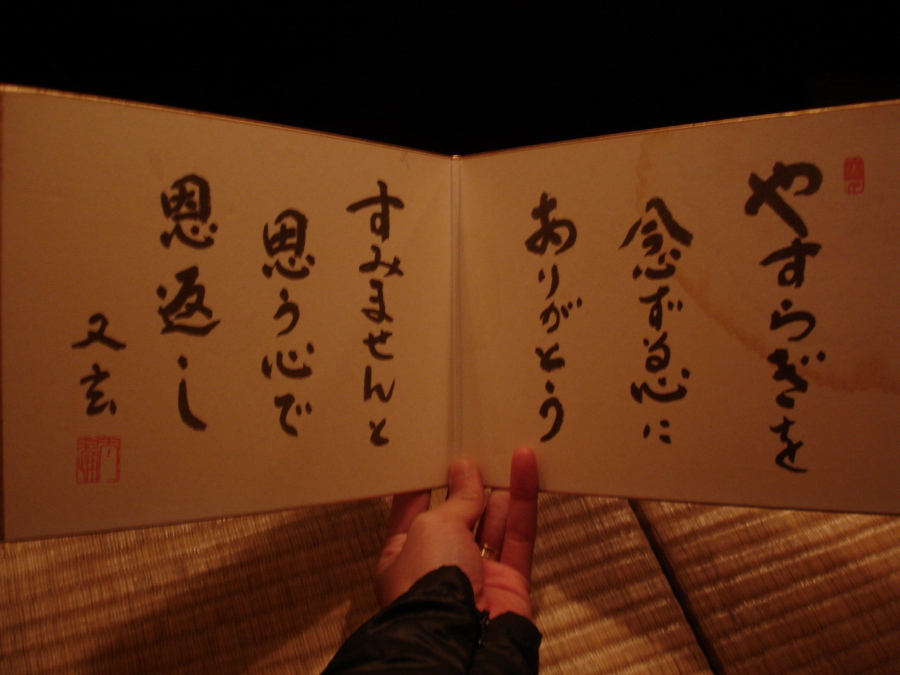 やすらぎを
念ずる心に
ありがとう
すみませんと
思う心で
恩返し
又玄